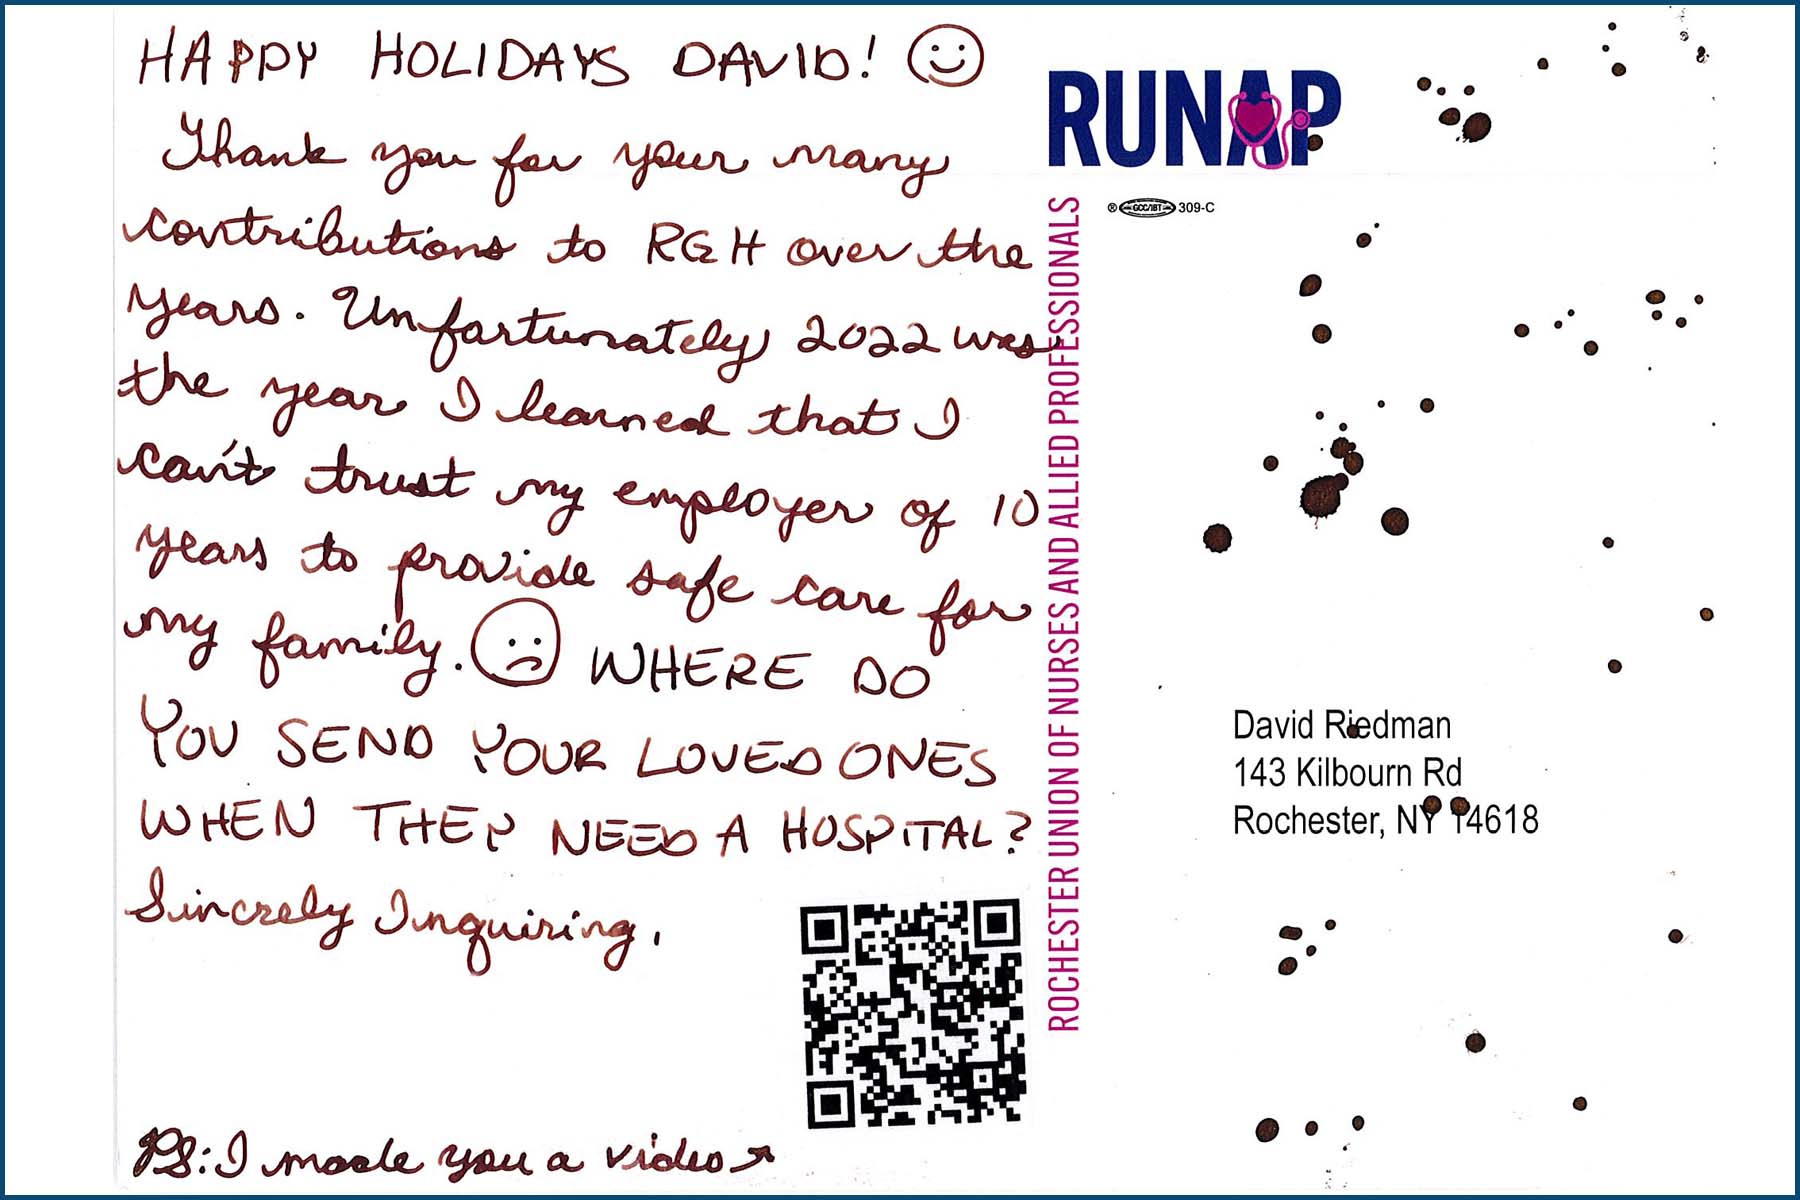 HAPPY HOLIDAYS DAVID!
Thank you for your many
contributions to RGH over the
years. Unfortunately 2022 was
the year I learned that I
can't trust my employer of 10
years to provide safe care for
my family. WHERE DO
YOU SEND YOUR LOVED ONES
WHEN THEY NEED A HOSPITAL?
Sincrely Inquiring,
PS: I made you a video
RUNAP
ROCHESTER UNION OF NURSES AND ALLIED PROFESSIONALS
® GCC/IBT 309-C
David Riedman
143 Kilbourn Rd
Rochester, NY 14618